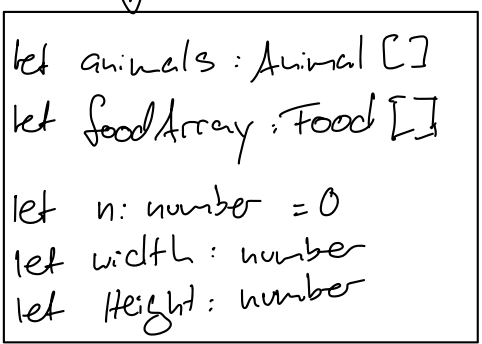 let animals : Animal []
let foodArray : Food []
let n: number = 0
let width : number
let Height : number